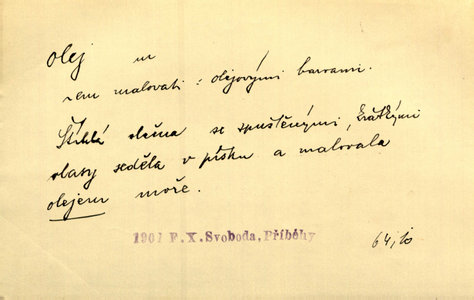 olej m
-em malovati : olejovými barvami.
Štíhlá slečna se spuštěnými, krátkými
vlasy seděla v písku a malovala
olejem moře.
1901 F.X.Svoboda, Příběhy
64,